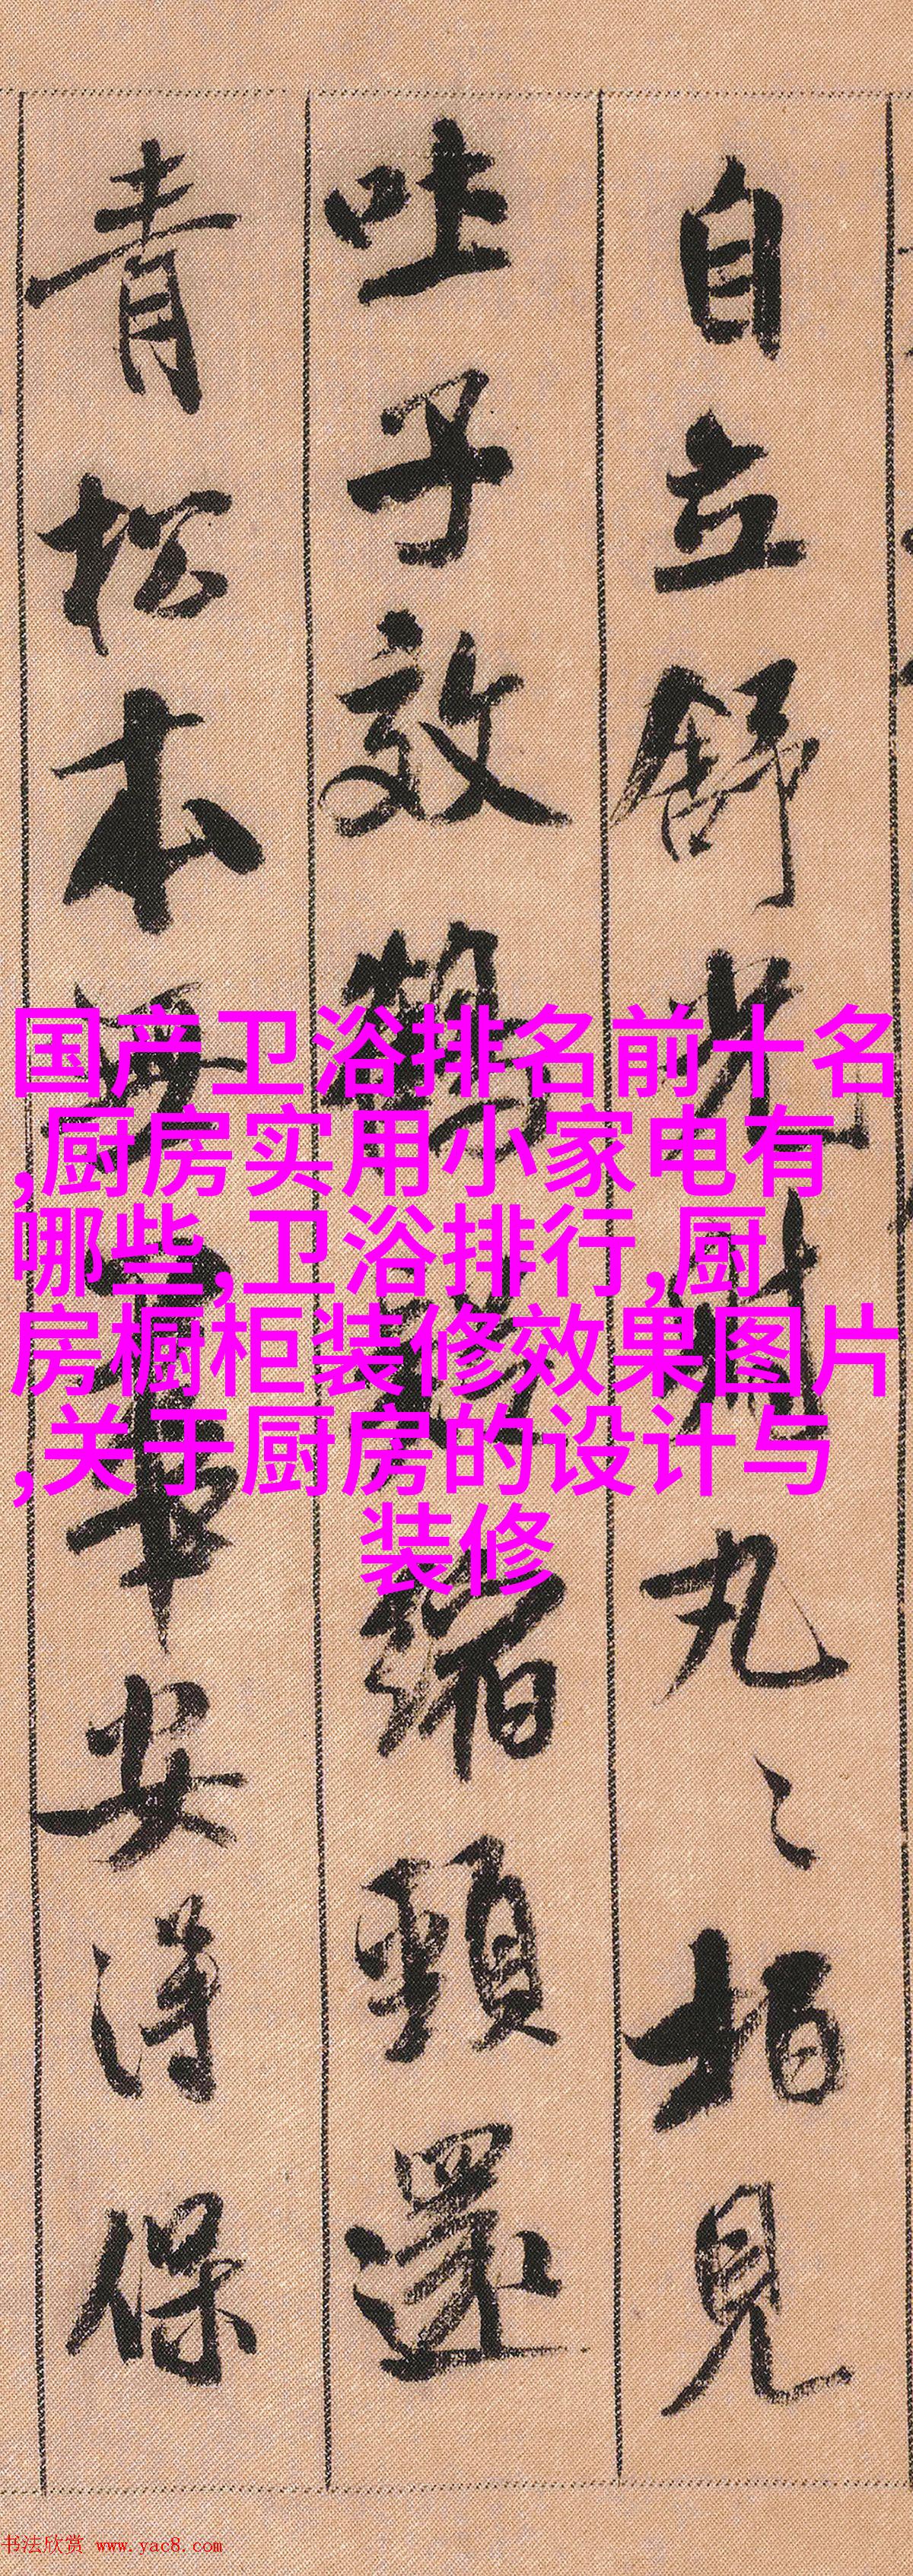 自立舒光射丸〻柏見
吐子效鶴疑縮頸還
青松本無華安得保
国产卫浴排名前十名
,厨房实用小家电有
哪些,卫浴排行,厨
房橱柜装修效果图片
,关于厨房的设计与
装修
书法欣赏 www.yac8.com